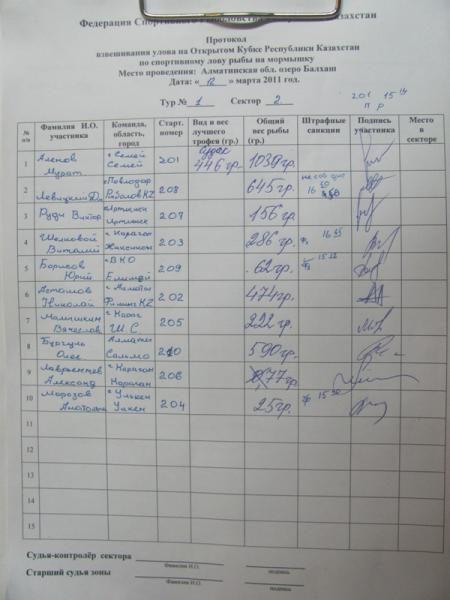 Федерация Спортивного Казахстан
Протокол
взвешивания улова на Открытом Кубке Республики Казахстан
по спортивному лову рыбы на мормышку
Место проведения: Алматинская обл. озеро Балхаш
Дата: « 12 » марта 2011 год.
Тур № 1 Сектор 2
201 15 14
п р
№ п/п Фамилия И.О. участника Команда, область, город Старт. номер Вид и вес лучшего трофея (гр.) Общий вес рыбы (гр.) Штрафные санкции Подпись участника Место в секторе
1 Мурат г Семей Семей 201 судак 446 гр. 1039 гр.
2 Левицкий Д. г Павлодар РыболовKZ 208 645 гр. 16
3 Руди Виктор 207 156 гр
4 Шелковой Виталий г Караган 203 286 гр.
5 Борисов Юрий г ВКО 209 62 гр.
6 Асташов Николай г Алматы Фишинг KZ 202 474 гр.
7 Малышкин Вячеслав г Караг Ш.С 205 222 гр.
8 Олег Алматы Сальмо 210 590 гр.
9 Лаврентьев Александ г Караган Караган 206 77 гр.
10 Морозов Анатолий г Улькен Улкен 204 25 гр.
11
12
13
14
15
Судья-контролёр сектора
Фамилия И.О. подпись
Старший судья зоны
Фамилия И.О. подпись